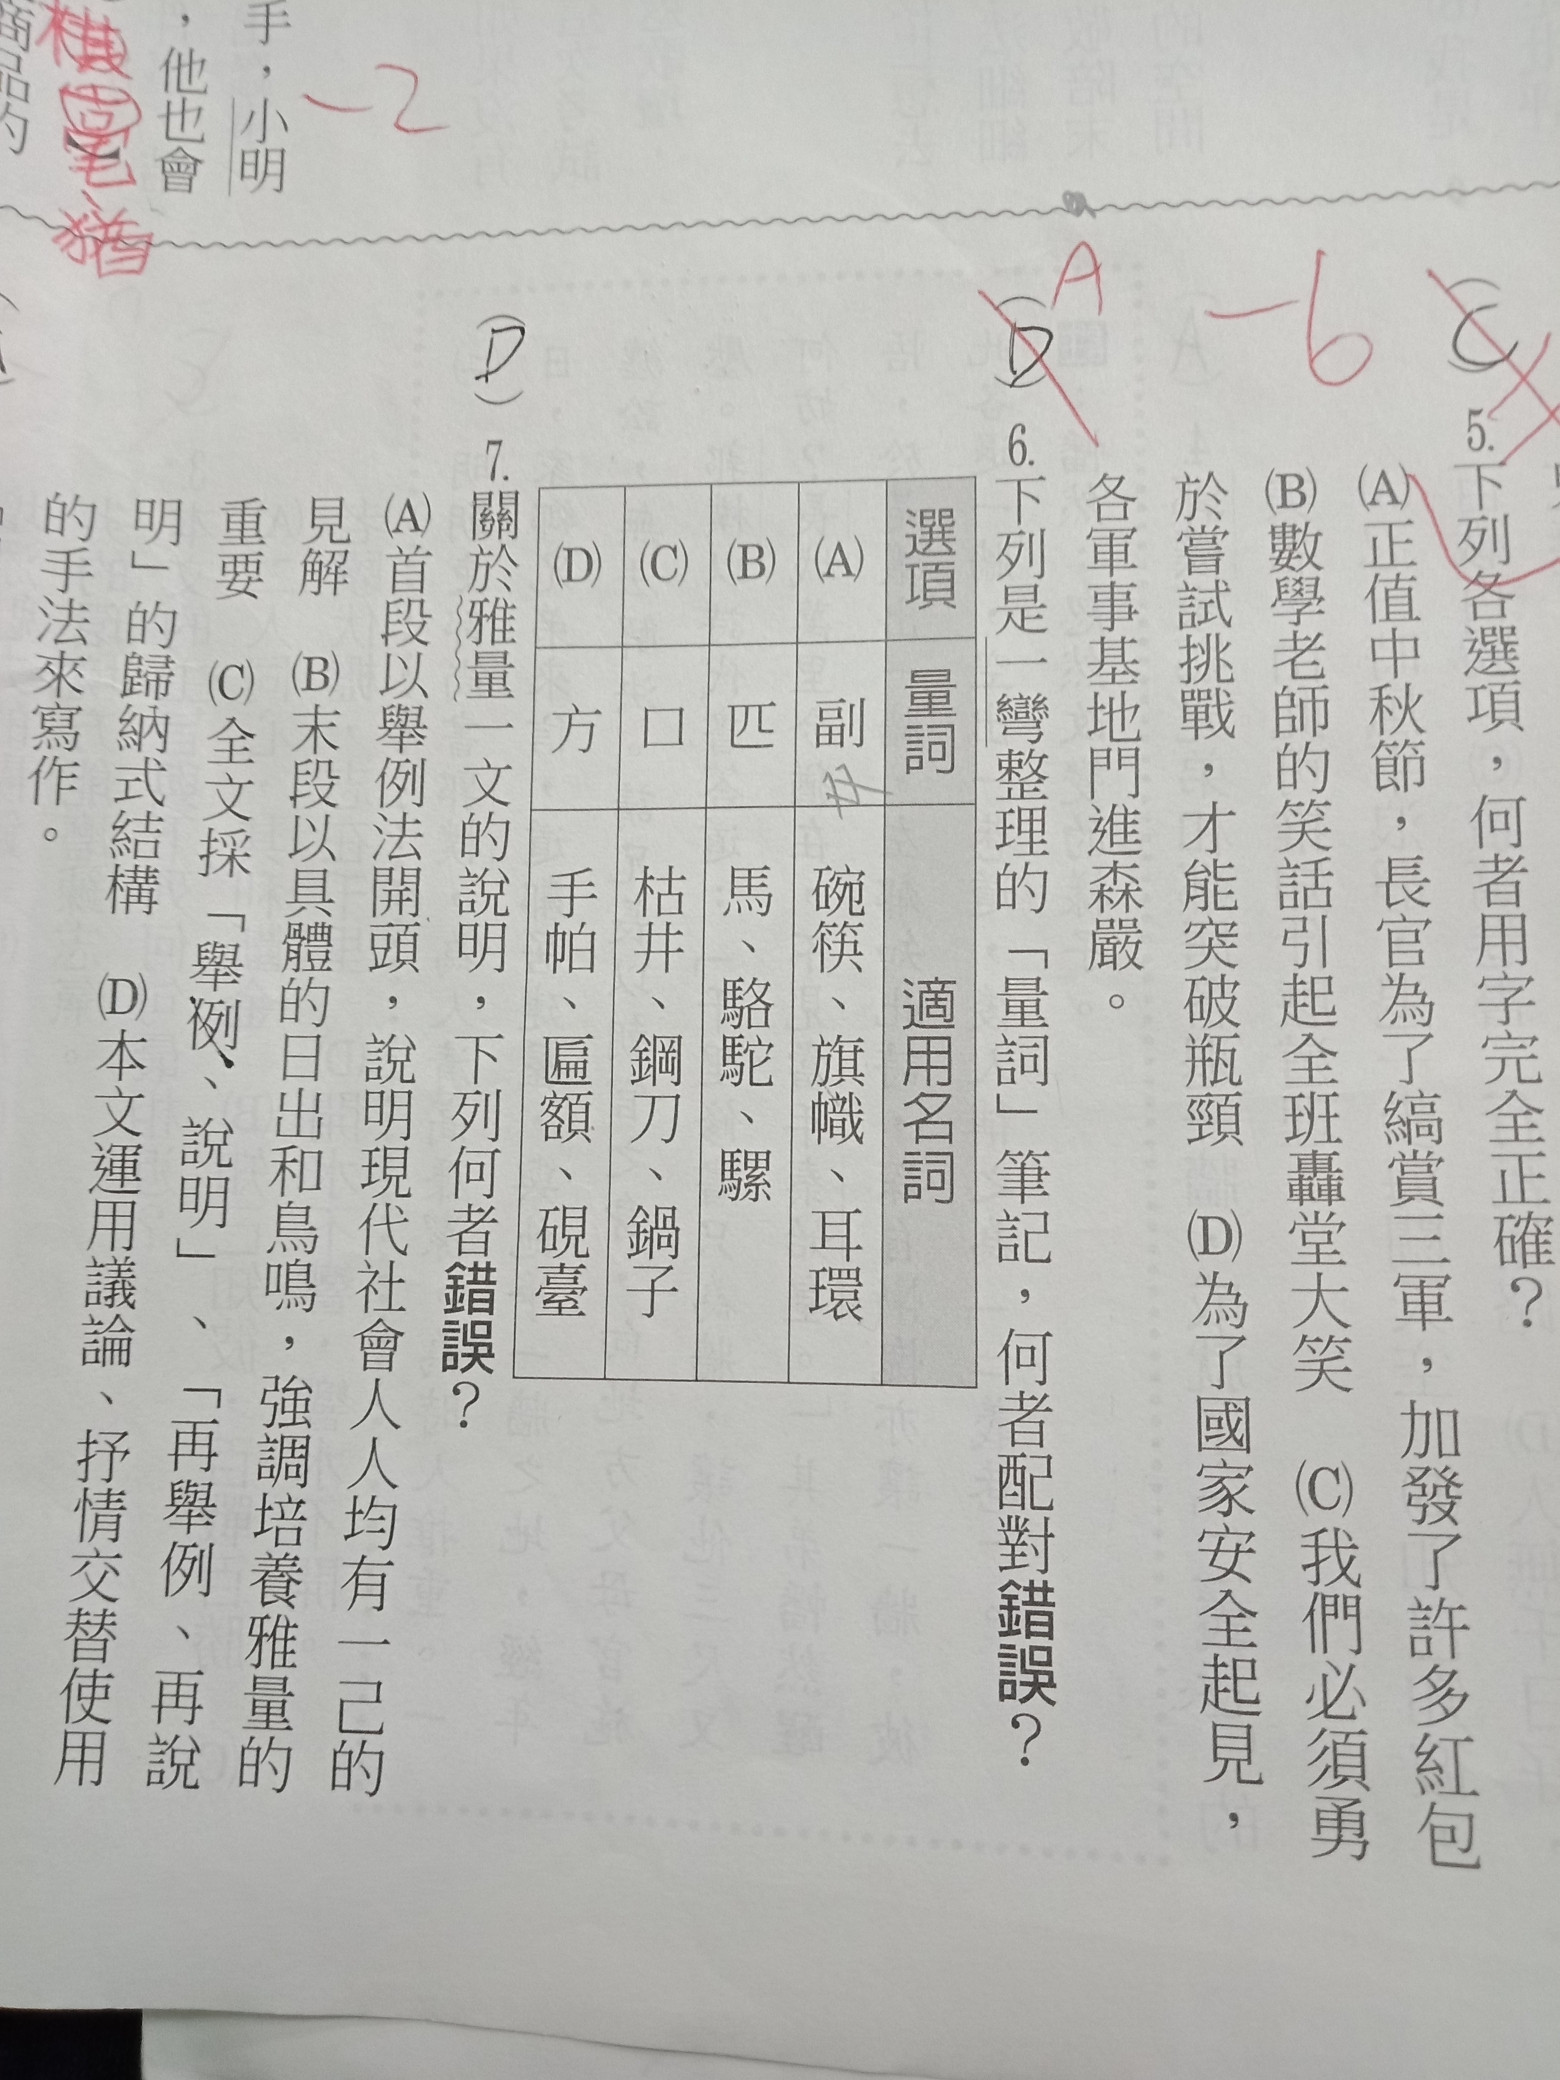 手，小明
，他也會
商品的
-2
棋
宅、猪
-6
(C)5.下列各選項，何者用字完全正確？
(A)正值中秋節，長官為了縞賞三軍，加發了許多紅包
(B)數學老師的笑話引起全班轟堂大笑　(C)我們必須勇
於嘗試挑戰，才能突破瓶頸　(D)為了國家安全起見，
各軍事基地門進森嚴。
A
(D)6.下列是一彎整理的「量詞」筆記，何者配對錯誤？
選項　量詞　適用名詞
(A)　副　碗筷、旗幟、耳環
(B)　匹　馬、駱駝、騾
(C)　口　枯井、鋼刀、鍋子
(D)　方　手帕、匾額、硯臺
(D)7.關於雅量一文的說明，下列何者錯誤？
(A)首段以舉例法開頭，說明現代社會人人均有一己的
見解　(B)末段以具體的日出和鳥鳴，強調培養雅量的
重要　(C)全文採「舉例、說明」、「再舉例、再說
明」的歸納式結構　(D)本文運用議論、抒情交替使用
的手法來寫作。